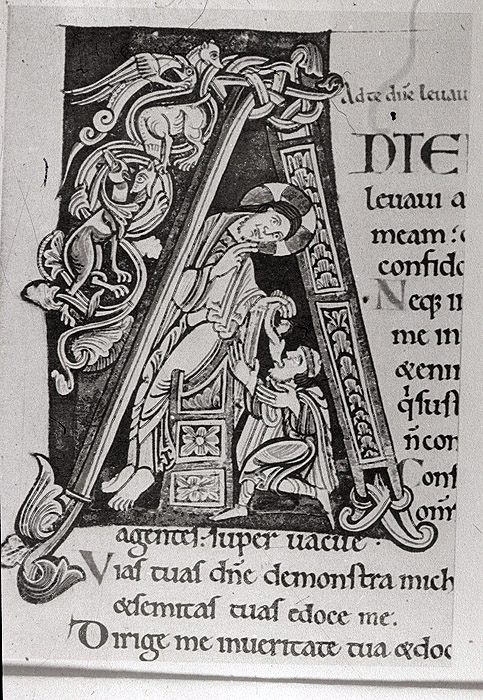 Ad te dñe leuaui
DTE
leuaui a
meam: 
confido
Neq; ir
me in
&enim
qͥ sust
ñ con
Conf
omͤ
agentes: super uacue·
Vias tuas dñe demonstra mich
&semitas tuas edoce me.
Dirige me inueritate tua &doc